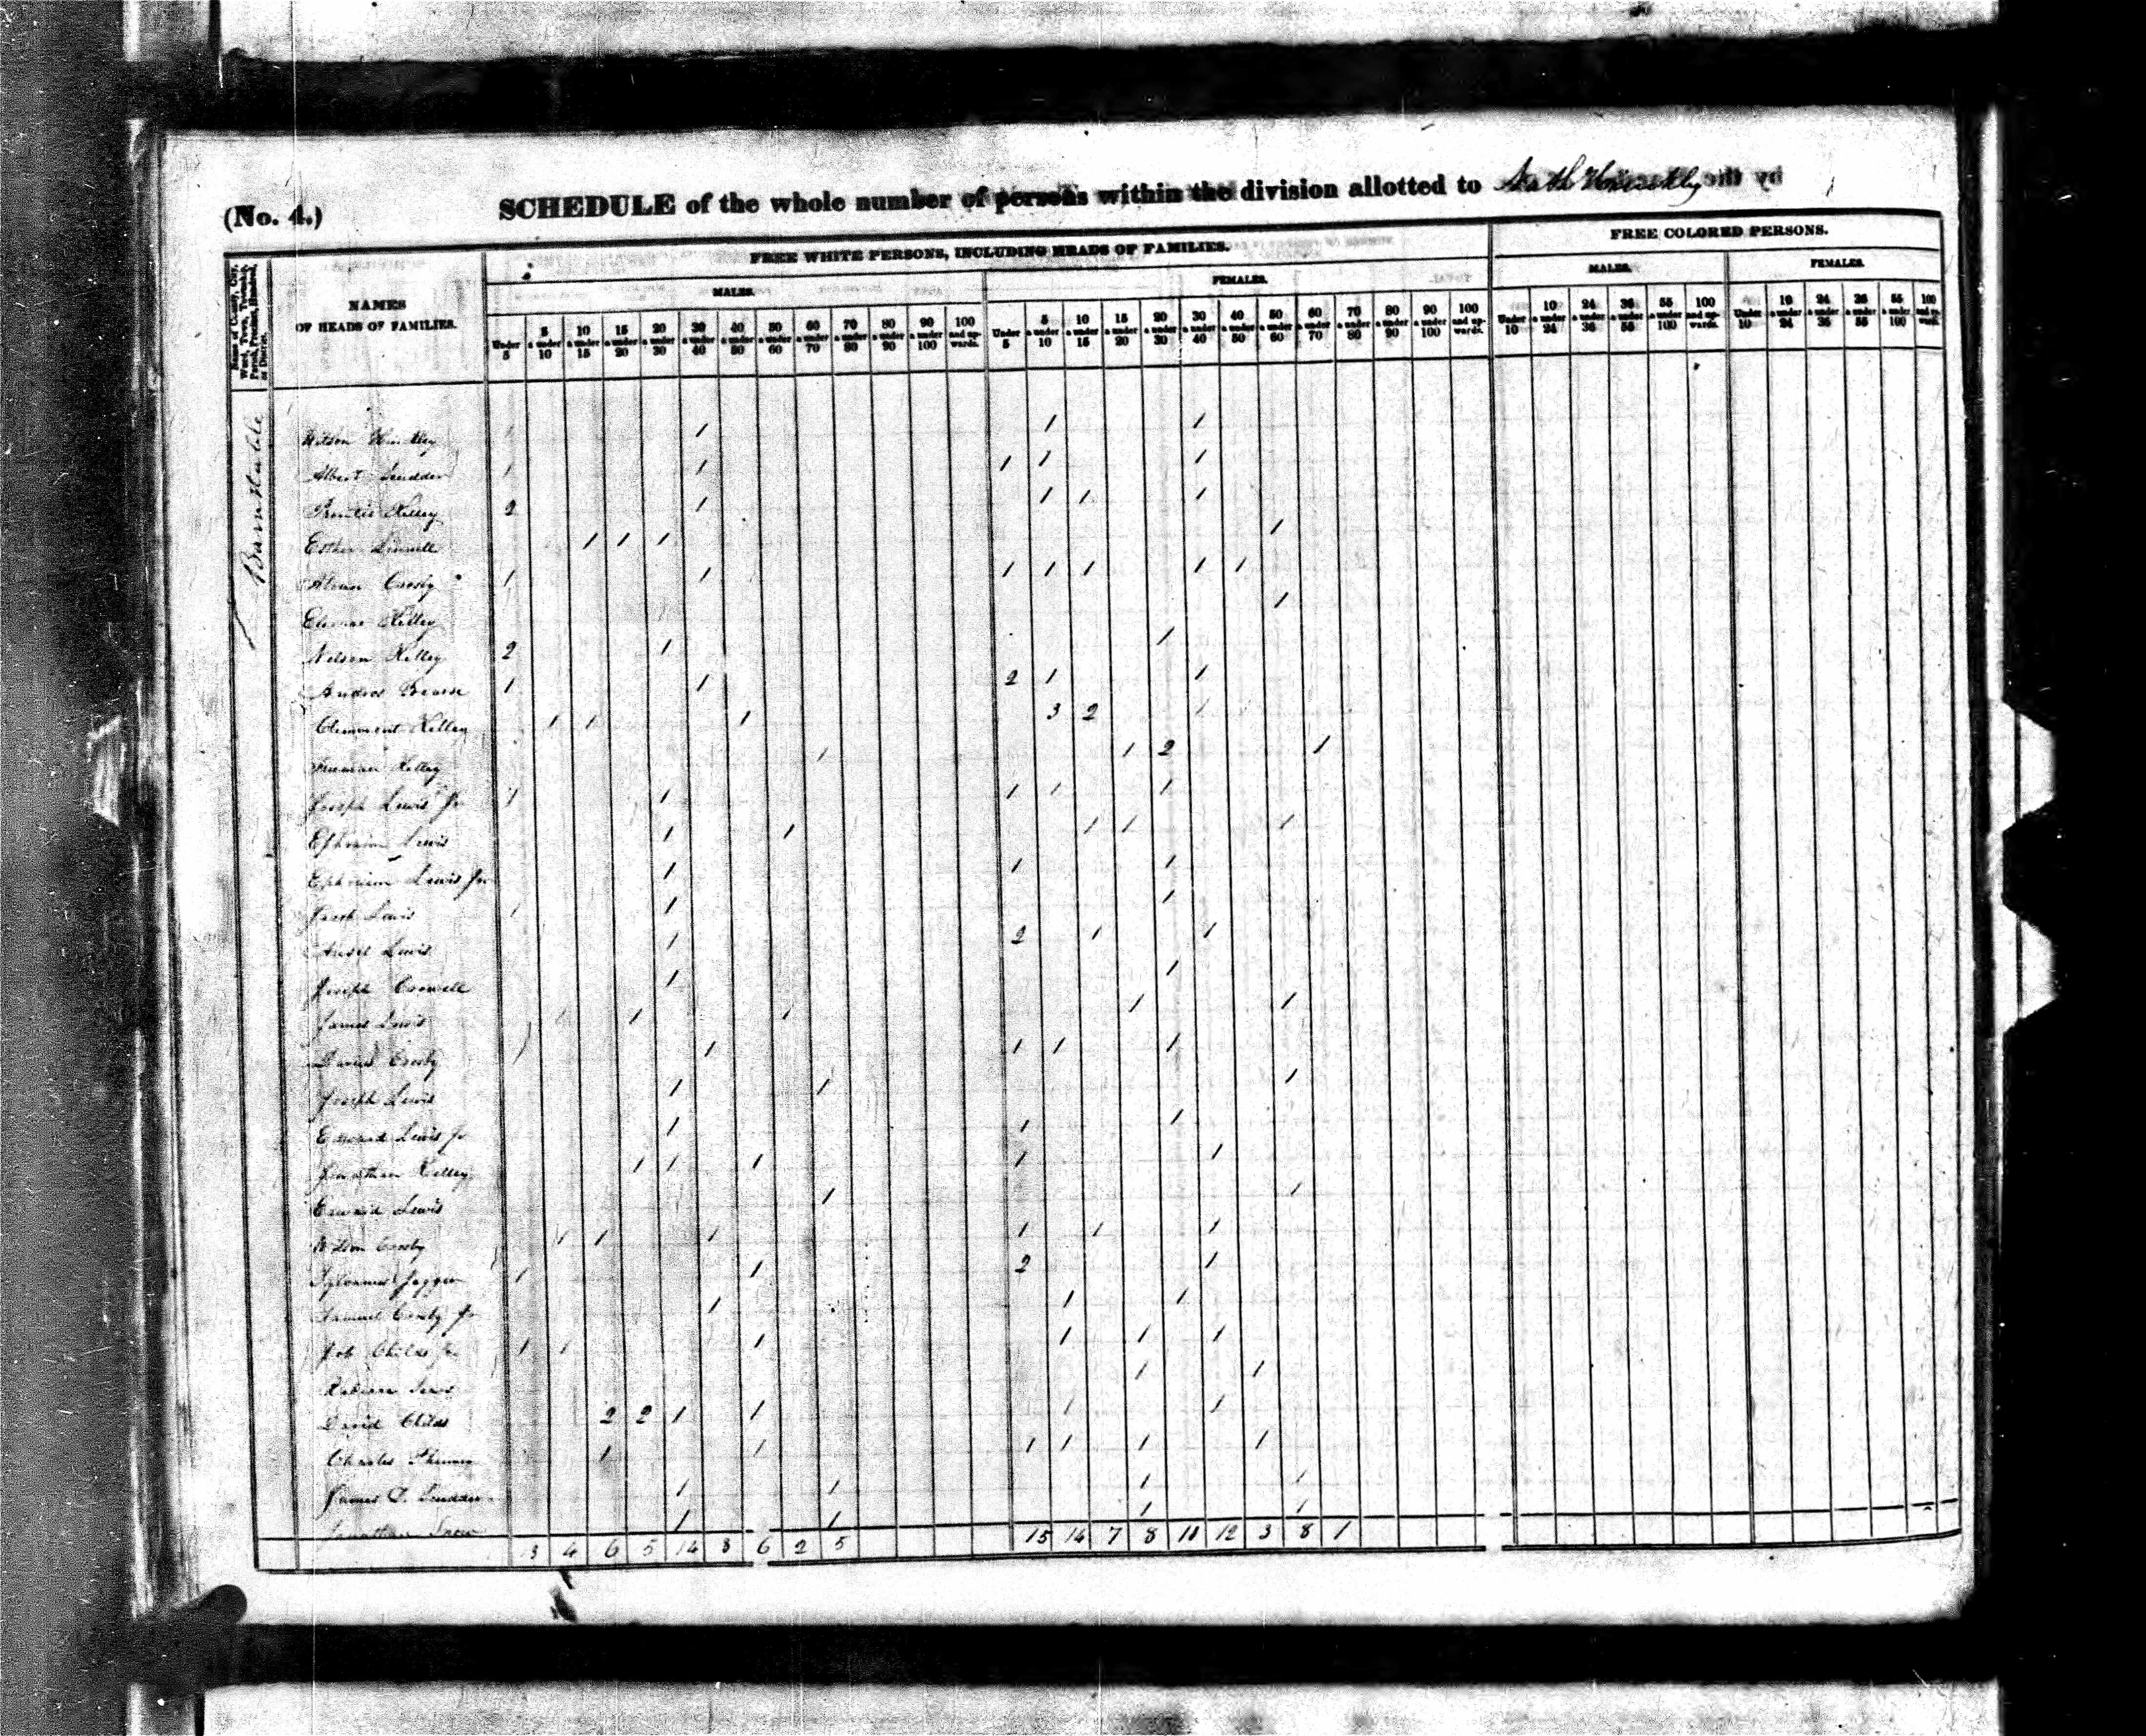 (No. 4.)
SCHEDULE of the whole number of persons within the division allotted to by the
Name of County, City, Ward, Town, Township, Parish, Precinct, Hundred, or District.
NAMES
OF HEADS OF FAMILIES.
FREE WHITE PERSONS, INCLUDING HEADS OF FAMILIES.
FREE COLORED PERSONS.
MALES. FEMALES. MALES. FEMALES.
Under 5 5 & under 10 10 & under 15 15 & under 20 20 & under 30 30 & under 40 40 & under 50 50 & under 60 60 & under 70 70 & under 80 80 & under 90 90 & under 100 100 and upwards.
Under 5 5 & under 10 10 & under 15 15 & under 20 20 & under 30 30 & under 40 40 & under 50 50 & under 60 60 & under 70 70 & under 80 80 & under 90 90 & under 100 100 and upwards.
Under 10 10 & under 24 24 & under 36 36 & under 55 55 & under 100 100 and upwards.
Under 10 10 & under 24 24 & under 36 36 & under 55 55 & under 100 100 and upwards.
Barnstable
Hinckley 1 1 1 1
Albert Scudder 1 1 1 1 1
Prentis Kelley 2 1 1 1 1
Esther Linnell 1 1 1 1
Crosby 1 1 1 1 1 1 1
Kelley 1
Nelson Kelley 2 1 1
Bearse 1 1 2 1 1
Clemment Kelley 1 1 1 3 2 1
Freeman Kelley 1 1 2 1
Joseph Lewis Jr 1 1 1 1 1
Ephraim Lewis 1 1 1 1 1
Ephraim Lewis Jr 1 1 1
Lewis 1 1 1
Ansel Lewis 1 2 1 1
Joseph Crowell 1 1
James Lewis 1 1 1 1 1
Crosby 1 1 1 1 1
Joseph Lewis 1 1 1
Edward Lewis Jr 1 1 1
Jonathan Kelley 1 1 1 1 1
Edward Lewis 1 1
Crosby 1 1 1 1 1 1
Sylvanus Jaggar 1 1 2 1
Samuel Crosby Jr 1 1 1
Job Childs Jr 1 1 1 1 1 1
1 1
David Childs 2 2 1 1 1 1
Charles 1 1 1 1 1 1
James Scudder 1 1 1 1
Jonathan Snow 1 1 1 1
4 6 5 14 8 6 2 5 15 14 7 8 12 3 8 1